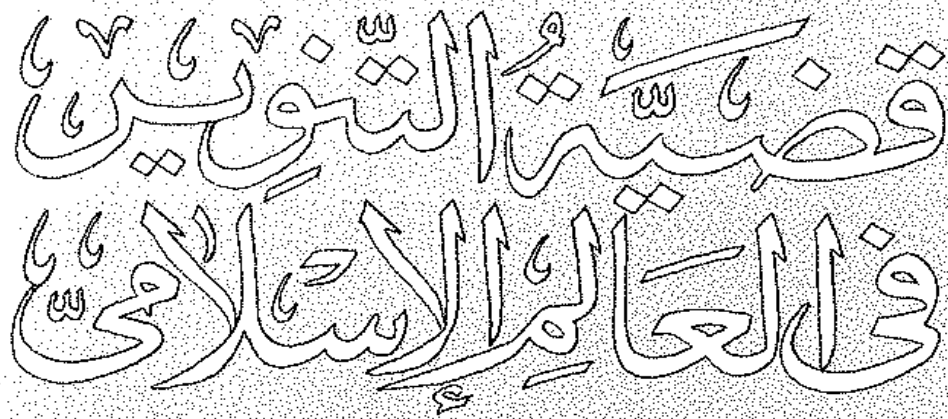 قَضِيَّةُ التَّنْوِيرِ
فِى العَالَمِ الإِسْلَامِىِّ